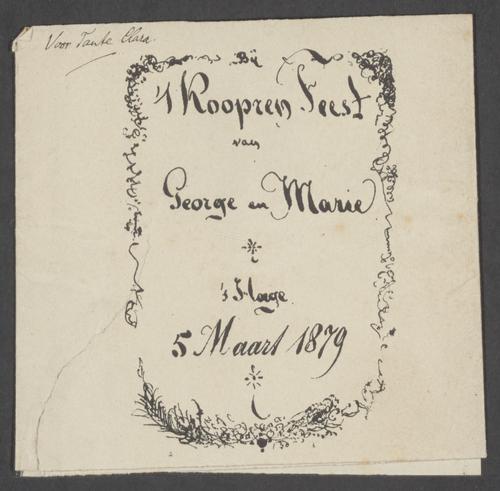 Voor Tante Clara.
Bij
't Koopren Feest
van
George en Marie
's Hage
5 Maart 1879